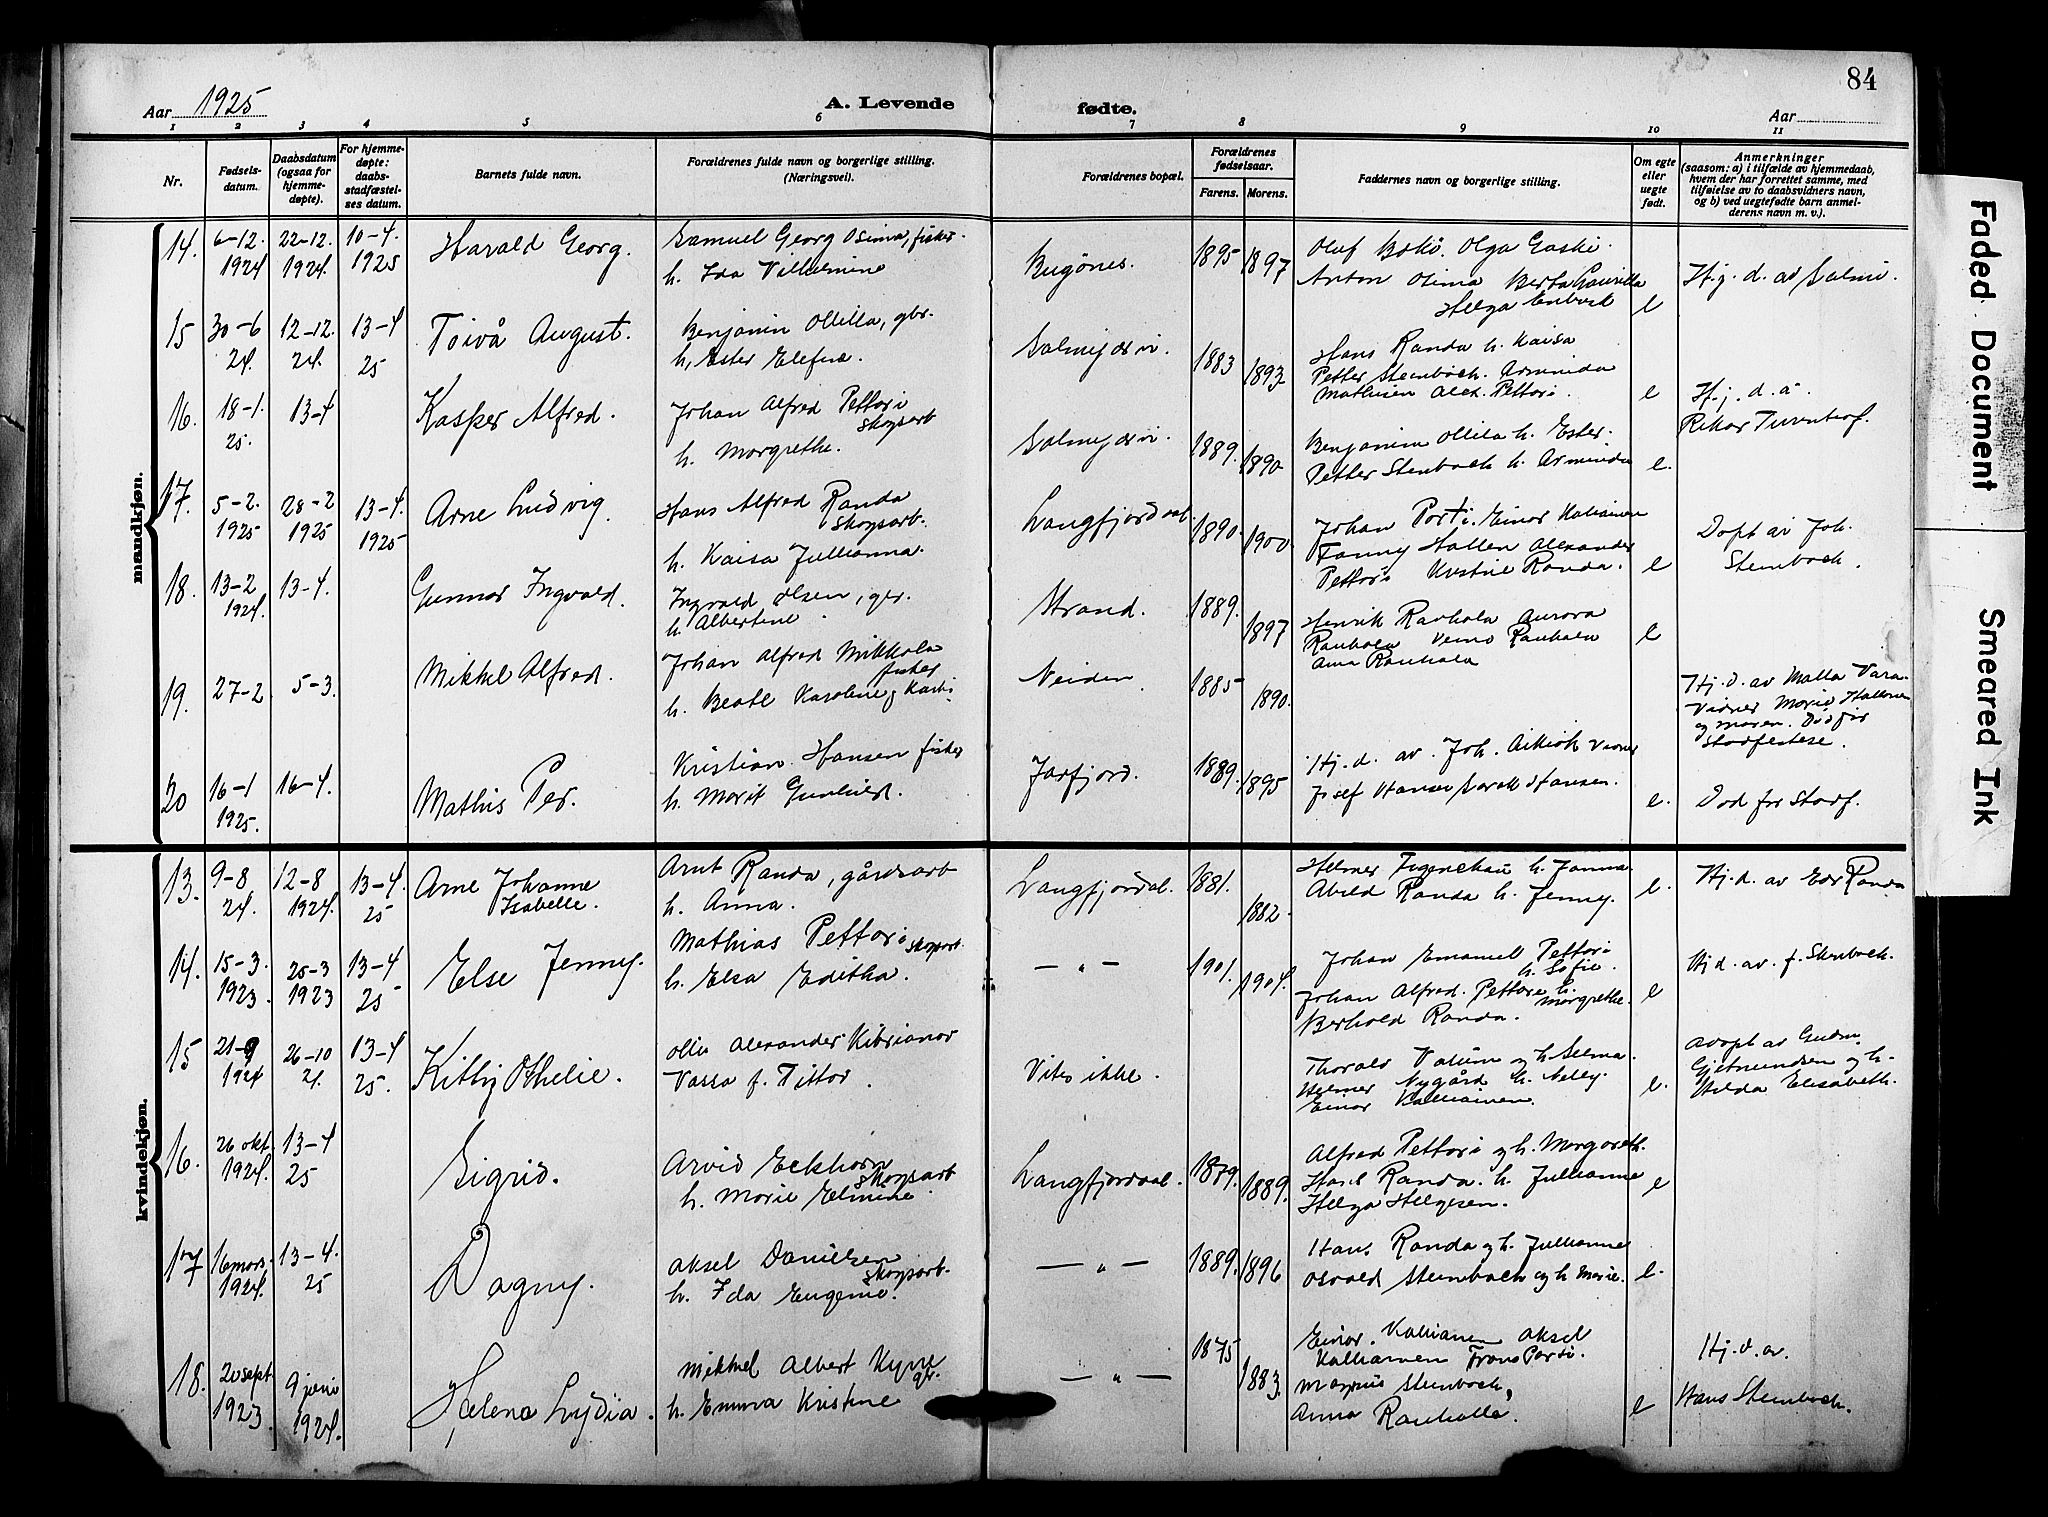 84
Aar 1925
A. Levende
fødte.
Aar
1 2 3 4 5 6 7 8 9 10 11
Nr.
Fødsels-
datum.
Daabsdatum
(ogsaa for
hjemme-
døpte).
For hjemme-
døpte:
daabs-
stadfæstel-
ses datum.
Barnets fulde navn.
Forældrenes fulde navn og borgerlige stilling.
(Næringsvei).
Forældrenes bopæl.
Forældrenes
fødselsaar.
Farens. Morens.
Faddernes navn og borgerlige stilling.
Om egte
eller
uegte
født.
Anmerkninger
(saasom: a) i tilfælde av hjemmedaab,
hvem der har forrettet samme, med
tilføielse av to daabsvidners navn,
og b) ved uegtefødte barn anmel-
derens navn m. v.).
mandkjøn.
14. 6-12. 1924 22-12. 1924. 10-4. 1925
Harald Georg.
Samuel Georg Osima, fisker.
h. Ida Vilhelmine
Bugönes.
1895 1897
Oluf Olga
Anton Osima Berta
Helga
e
Hj. d. av Salmi.
15 30-6 24. 12-12. 24. 13-4 25
Toivå August.
Benjamin Ollilla, gbr.
h. Ester
Salmijärvi.
1883 1893
Hans Randa h. Kaisa
Petter Steinbach. Arminda
Alex. Pettori.
e
Hj. d. a
16. 18-1. 25. 13-4
Kasper Alfred.
Johan Alfred Pettori
skogsarb
h. Margrethe.
Salmijärvi.
1889. 1890
Benjamin Ollila h. Ester.
Petter Stenbach h. Arminda
e.
17. 5-2. 1925 28-2 1925 13-4. 1925
Arne Ludvig.
Hans Alfred Randa
skogsarb.
h. Kaisa Julianna.
Langfjorddal.
1890. 1900
Johan Porti. Einar
Fanny Hallen Alexander
Pettori Randa.
e
Døpt av Joh.
Steinbach.
18. 13-2 1924. 13-4.
Gunnar Ingvald.
Ingvald Olsen, gbr.
h. Albertine
Strand.
1889. 1897
Henrik Rauhala Aurora
Rauhala Veino Rauhala
Anna Rauhala
e
19. 27-2 5-3.
Mikkel Alfred.
Johan Alfred Mikkola
fisker
h. Beate Karoline
Neiden.
1885 1890.
Hj. d. av Malla Vara
Vidner Marie
og moren. Død før
stadfestelse.
20 16-1 1925. 16-4.
Mathis Per.
Kristian Hansen fisker
h. Marit Gunhild.
Jarfjord.
1889. 1895
Hj. d. av. Joh. Aikio Vidner
Josef Hansen Hansen.
e.
Død før Stadf.
kvindekjøn.
13. 9-8 24. 12-8 1924. 13-4. 25
Arne Johanne
Isabelle.
Arnt Randa, gårdsarb
h. Anna.
Langfjordal.
1881. 1882.
Helmer h. Janna.
Randa h. Jenny.
e.
Hj. d. av Edv Randa
14. 15-3. 1923. 25-3 1923 13-4 25
Else Jenny.
Mathias Pettori skogsarb.
h. Elsa Editha.
— „ —
1901. 1904.
Johan Emanuel Pettori
h. Sofie.
Johan Alfred. Pettori h.
Margrethe.
Berhold Randa.
e
Hj d. av. J. Stenbach.
15 21-9 1924 26-10 24. 13-4 25.
Kitty Othelie.
Alexander
Vassa f. Tittor.
Vites ikke.
Thorald og h. Selma.
Helmer Nygård h. Nelly.
Einar
e.
Adopt av Gudm.
og h.
Hilda Elisabeth.
16. 26 okt. 1924. 13-4 25
Sigrid.
Arvid Eckhorn
skogsarb
h. Marie Elmine.
Langfjordal.
1879. 1889.
Alfred Pettori og h. Margareth.
Randa. h. Julianne
Helga Helgesen.
e
17 16 mars. 1924. 13-4. 25
Dagny.
Aksel Danielsen
skogsarb.
h. Ida Eugenie.
— „ —
1889. 1896
Hans Randa og h. Julianne
Osvald Steinbach og h Marie.
e.
18. 20 sept. 1923. 9 juni 1924.
Helena Lydia.
Mikkel Albert
gbr.
h. Emma Kristine
— „ —
1875 1883.
Einar. Aksel
Frans Porti.
Magnus Steinbach,
Anna
e
Hj. d. av.
Hans Steinbach.
Faded Document
Smeared Ink